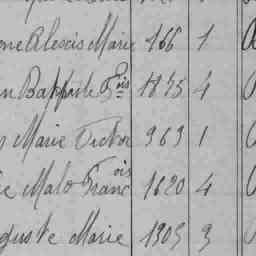 Alexis Marie 166 1
Baptiste Fois 1875 4
Marie Victor 963 1
Malo Franc ois 1620 4
Marie 1305 3